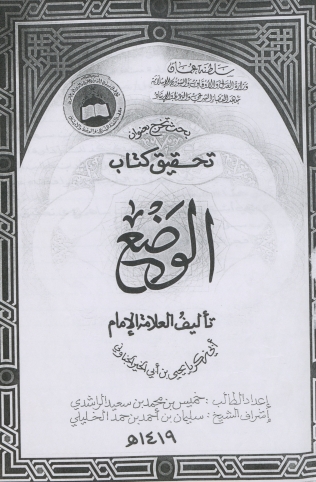 سلطنة عمان
وزارة العدل والأوقاف والشئون الإسلامية
معهد القضاء الشرعي والوعظ والإرشاد
بحث تخرج بعنوان
تحقيق كتاب
الوضع
تأليف العلامة الإمام
أبي زكريا يحيى بن أبي الخير الجناوني
إعداد الطالب : خميس بن محمد بن سعيد الراشدي
إشراف الشيخ : سليمان بن أحمد بن حمد الخليلي
١٤١٩هـ